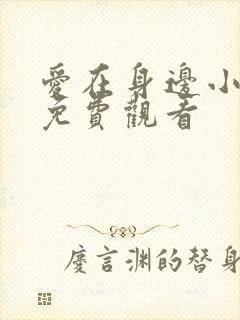 愛在身邊小
免費觀看
慶言渊的替身